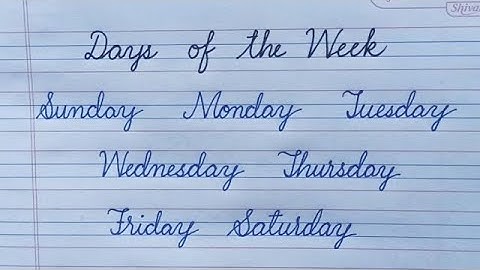 Shiva
Days of the Week
Sunday Monday Tuesday
Wednesday Thursday
Friday Saturday